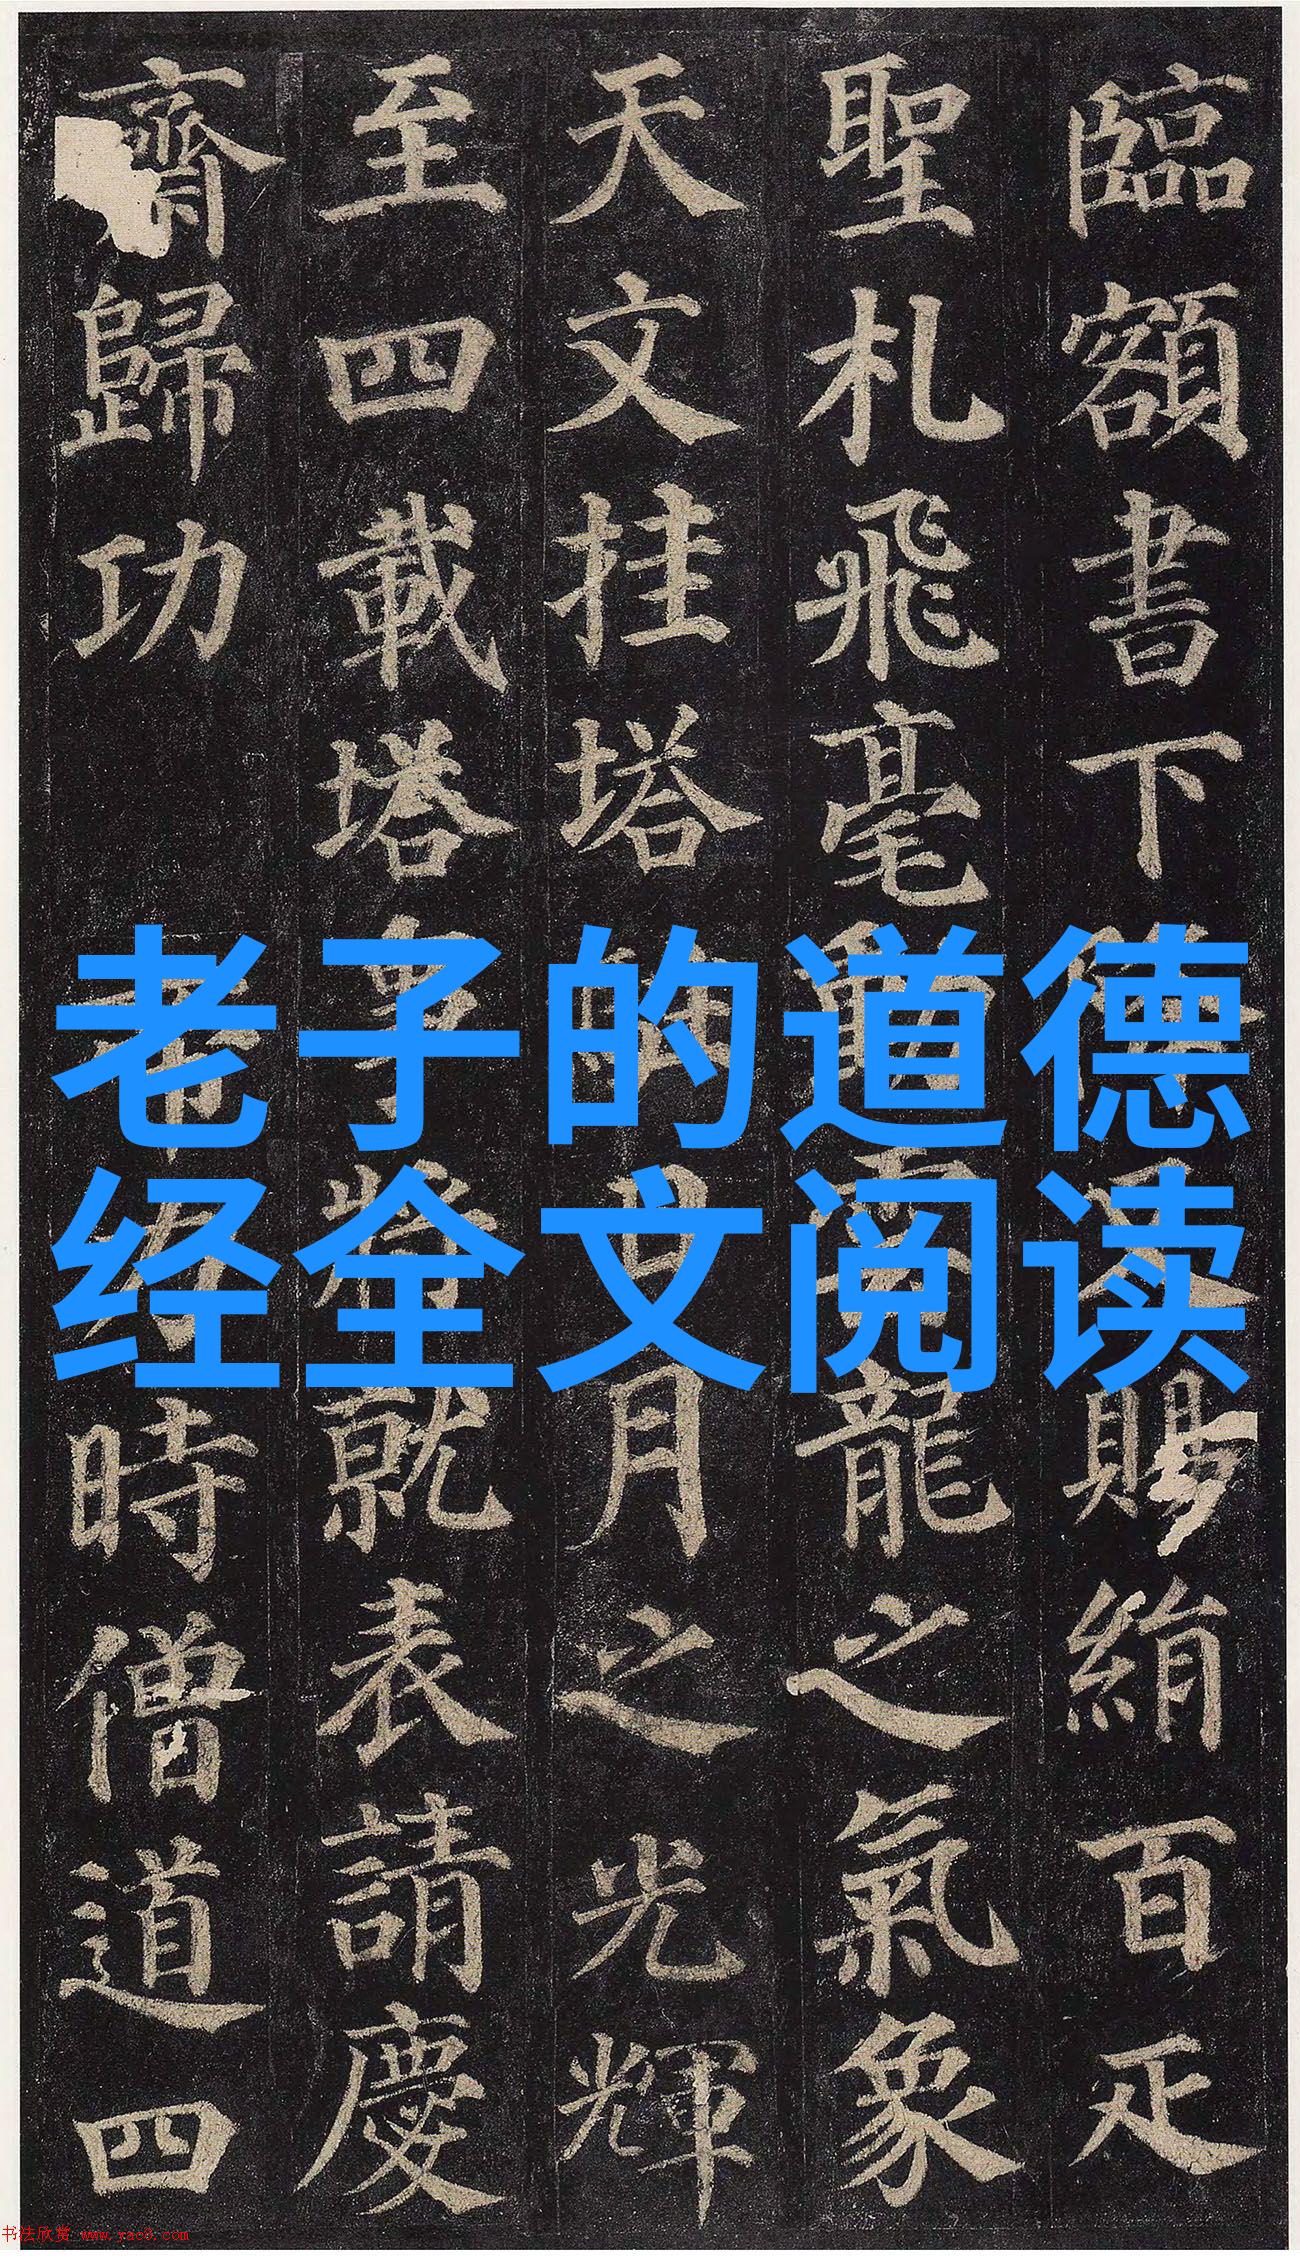 老子的道德
经全文阅读
臨額書下降又賜絹百疋
聖札飛毫動雲龍之氣象
天文挂塔駐日月之光輝
至四載塔事將就表請慶
齋歸功帝力時僧道四
书法欣赏 www.yac8.com